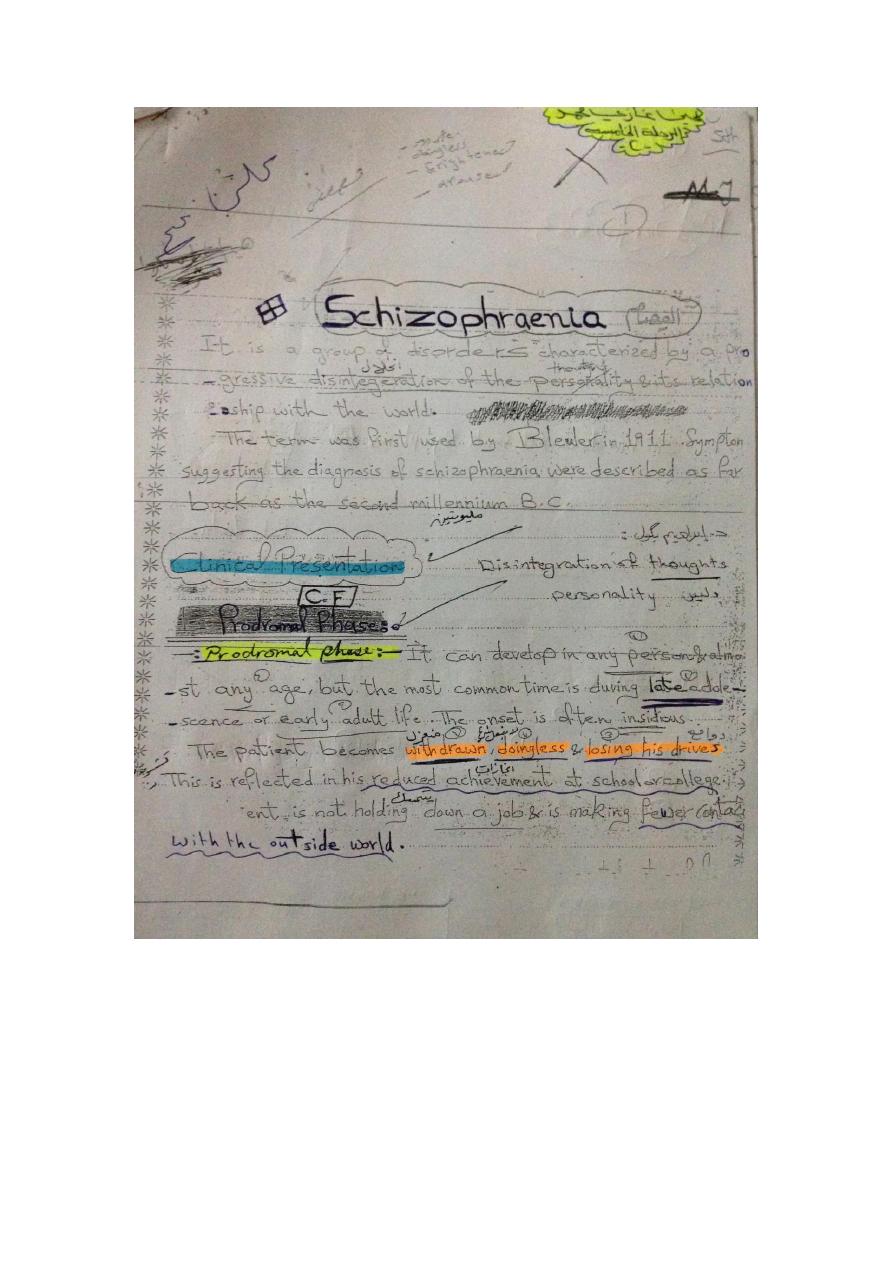 المرحلة الخامسة
5th
- frightened
- aroused
M.J
1
Schizophraenia الفصام
It is a group of disorders characterized by a pro
thoughts
- gressive disintegeration of the personality & its relation
- ship with the world.
The term was first used by Bleuler in 1911. Sympton
suggesting the diagnosis of schizophraenia were described as far
back as the second millennium B.C.
د. ابراهيم يگول :
Clinical Presentation
Disintegration of thoughts
personality وليس
C.F
Prodromal Phase:
: Prodromal phase:- It can develop in any person & almo
-st any age, but the most common time is during late adole-
-scence or early adult life. The onset is often insidious.
منعزل دوافع
The patient becomes withdrawn, doingless & losing his drives
This is reflected in his reduced achievement at school or college.
ent is not holding down a job & is making fewer contac
with the outside world.